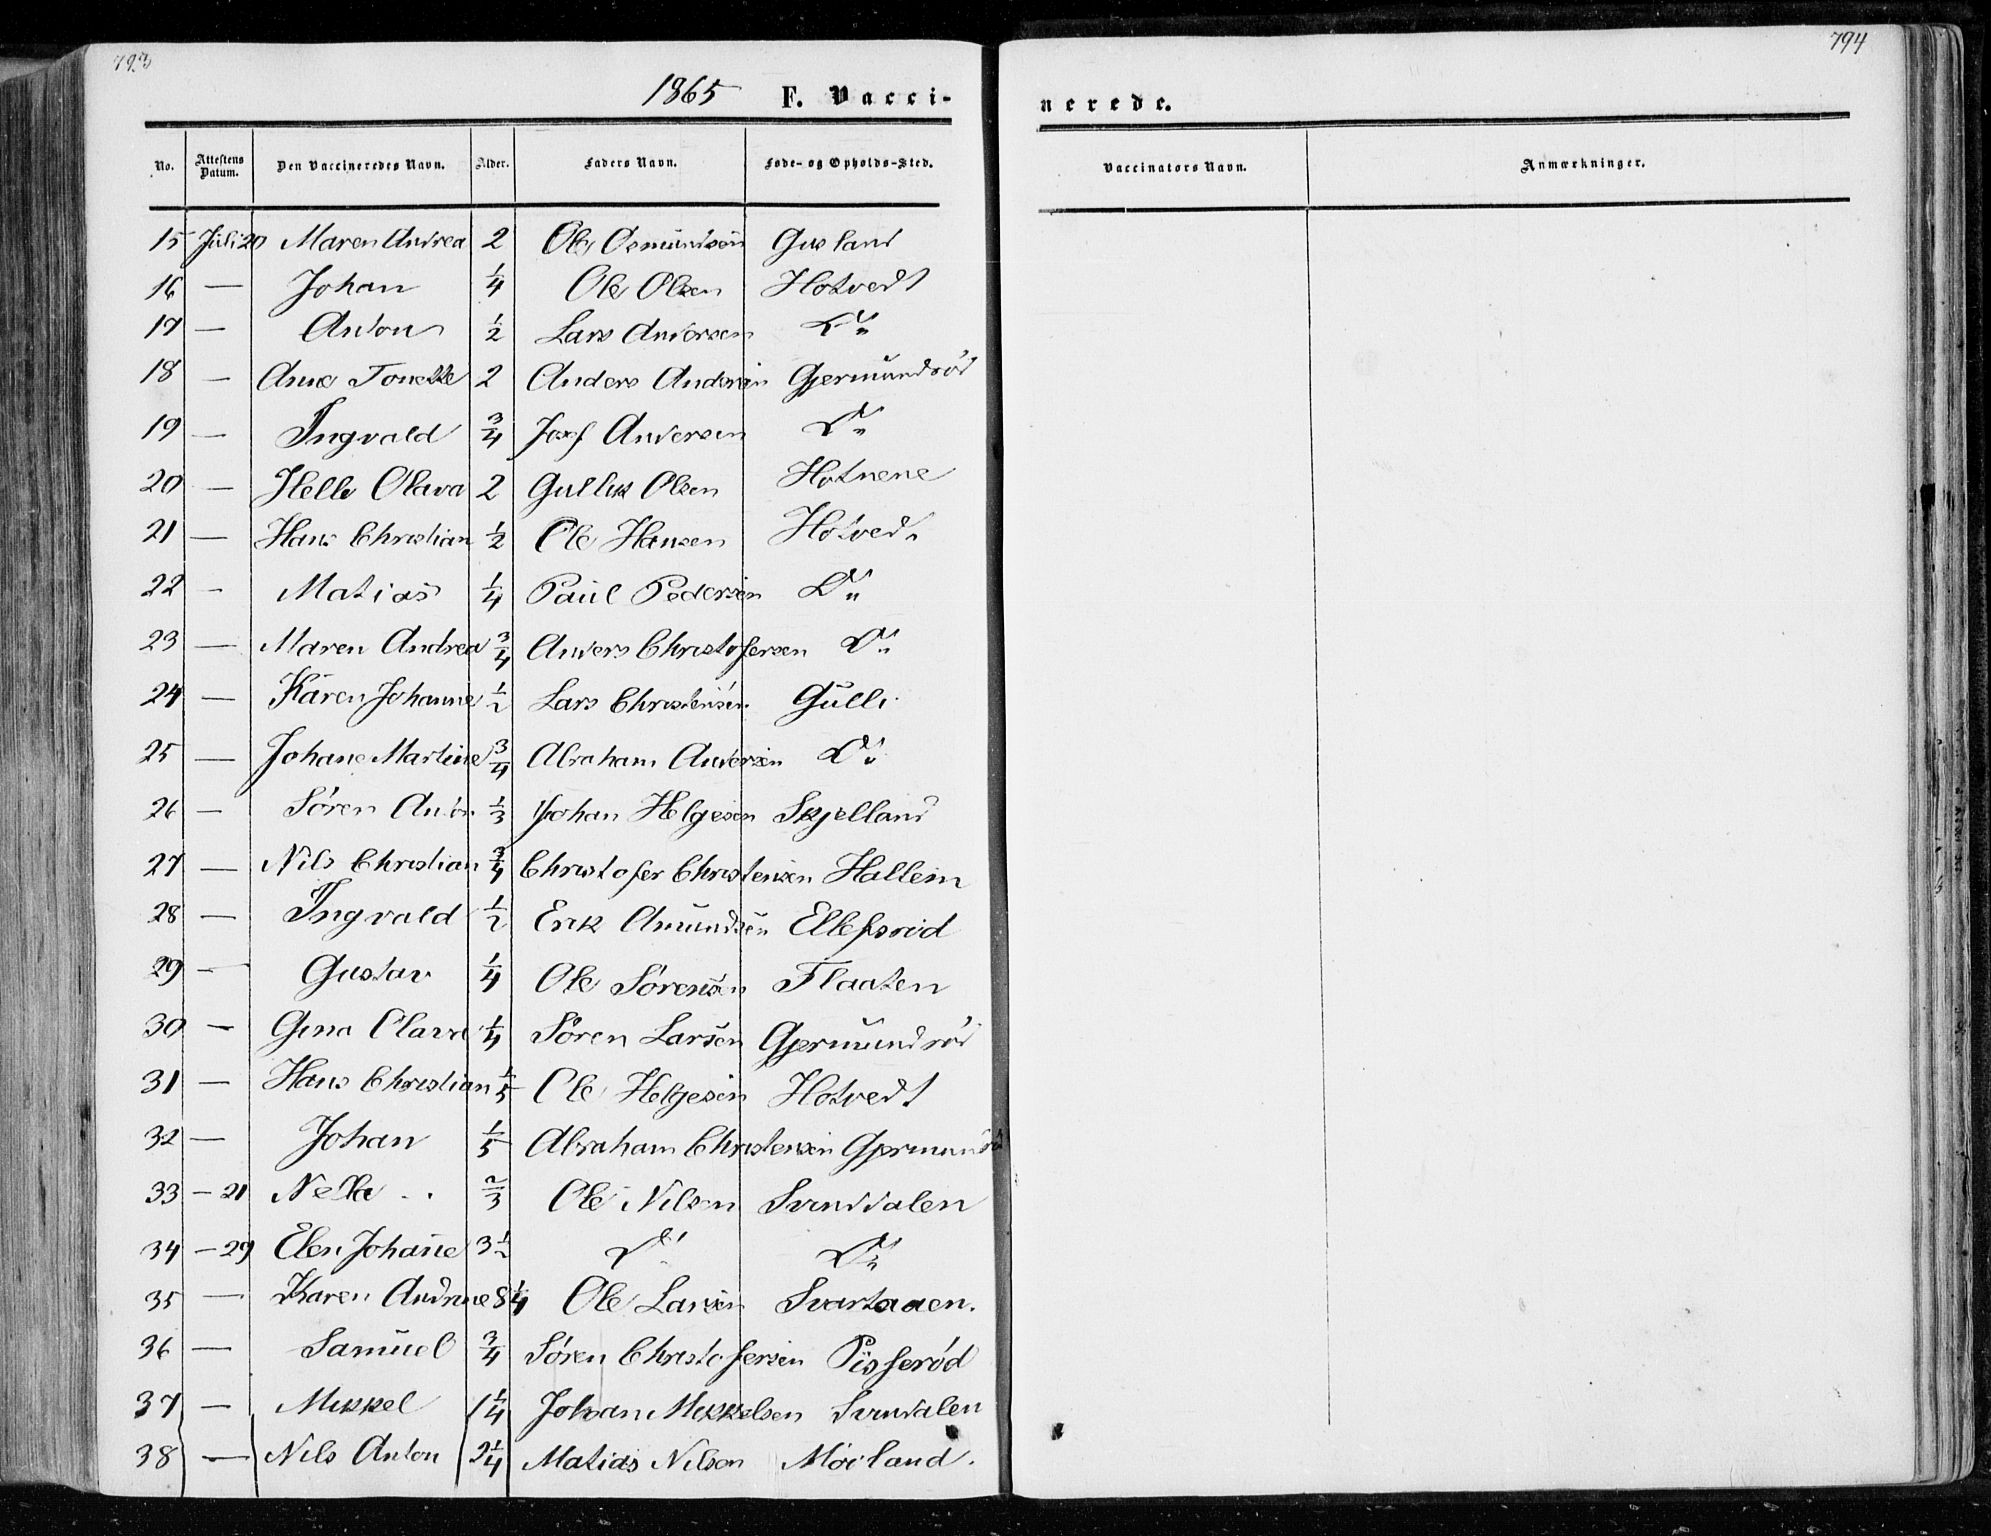 793
794
1865 F. Vacci-
nerede.
No. Attestens Datum. Den Vaccineredes Navn. Alder. Faders Navn. Føde- og Opholds-Sted.
Vaccinators Navn. Anmærkninger.
15 Juli 20 Maren Andrea 2 Ole Gusland
16 — Johan 1/4 Ole Olsen Hotvedt
17 — Anton 1/2 Lars Andersen Do
18 — Anne Tonette 2 Anders Andersen Gjermundröd
19 — Ingvald 3/4 Josef Andersen Do
20 — Helle Olava 2 Gullik Olsen Hotnene
21 — Hans Christian 1/2 Ole Hansen Hotvedt
22 — Matias 1/4 Paul Pedersen Do
23 — Maren Andrea 3/4 Anders Christofersen Do
24 — Karen Johanne 1/2 Lars Christensen Gulli
25 — Johane Martine 3/4 Abraham Andersen Do
26 — Sören Anton 1/3 Johan Helgesen Skjelland
27 — Nils Christian 3/4 Christofer Christensen Hallem
28 — Ingvald 1/2 Erik Amundsen Ellefsröd
29 — Gustav 1/4 Ole Sörensen Flaaten
30 — Gina Olava 1/4 Sören Larsen Gjermundröd
31 — Hans Christian 1/5 Ole Helgesen Hotvedt
32 — Johan 1/5 Abraham Christensen Gjermundröd
33 — 21 2/3 Ole Nilsen Svinddalen
34 — 29 Elen Johanne 3 1/2 Do Do
35 — Karen Andrine 8 1/4 Ole Larsen Svartaaen.
36 — Samuel 3/4 Sören Christofersen Pisseröd
37 — Mikkel 1 1/4 Johan Mikkelsen Svindalen
38 — Nils Anton 2 1/4 Matias Nilson Möiland.